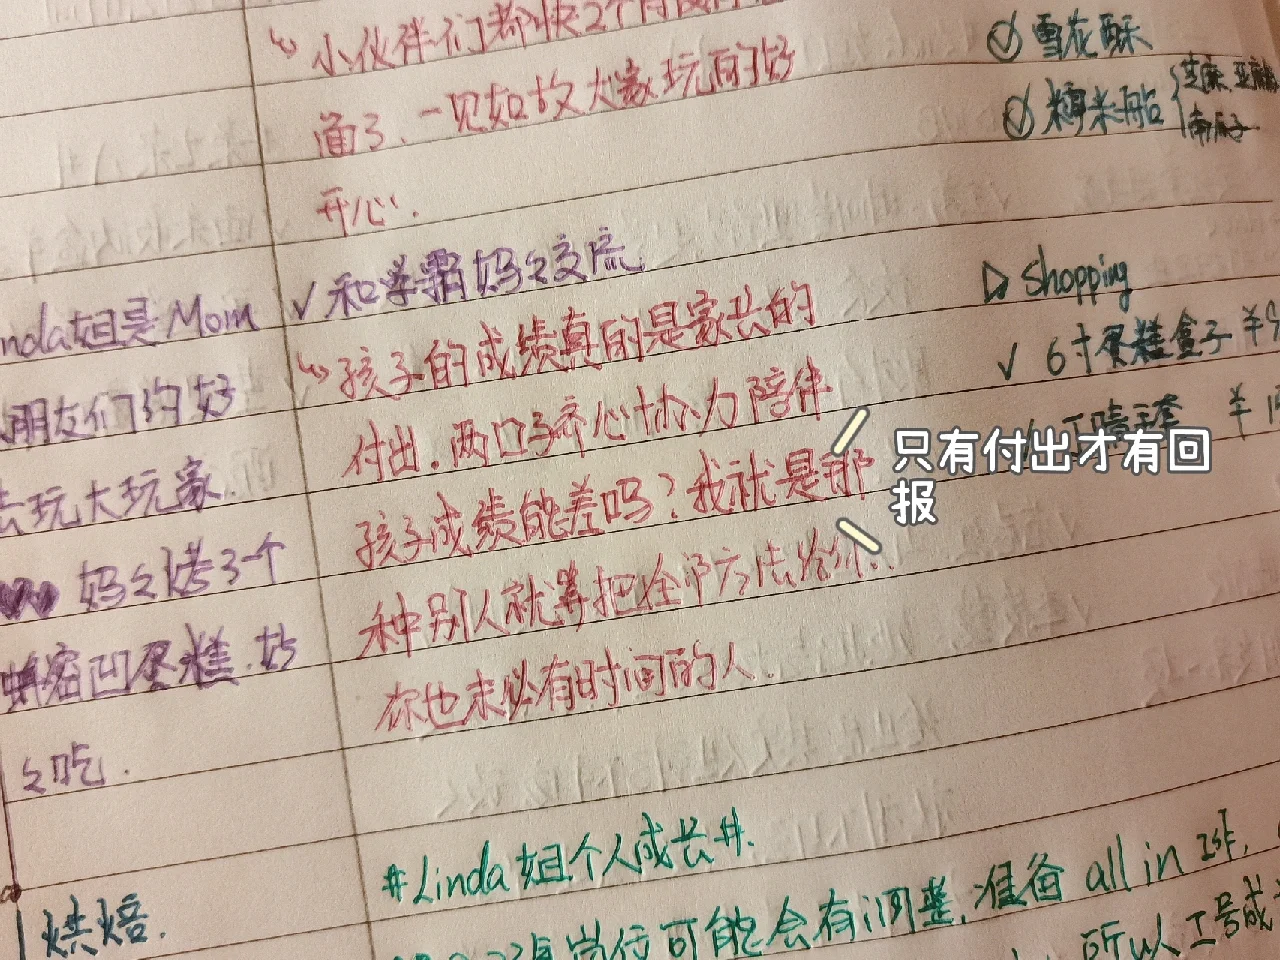 小伙伴们都快2个月没
通了、一见如故大家玩的好
开心.
nda姐是Mom
朋友们的好
去玩大玩家.
妈々烤3个
蜂蜜凹蛋糕.好
々吃.
烘焙.
✓ 和学霸妈々交流
孩子的成绩真的是家长的
付出.两口子齐心协力陪伴
孩子成绩能差吗?我就是那
种别人就算把全部方法给你.
你也未必有时间的人.
#Linda姐个人成长#.
岗位可能会有调整,准备all in
所以工号成
✓ 雪花酥
✓ 糯米船 { 芝麻、亚麻
南瓜子
▷ Shopping
✓ 6寸蛋糕盒子 ¥9
¥ 1
只有付出才有回
报